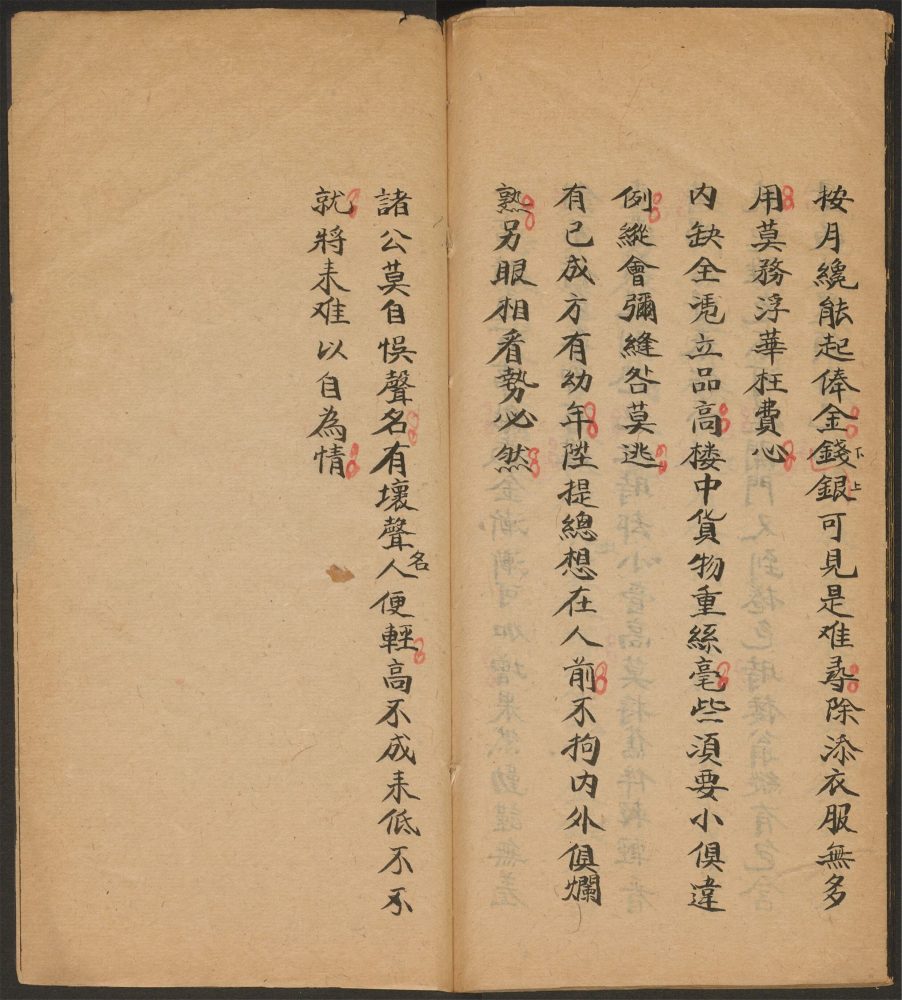 按月纔能起俸金錢下銀上可見是难尋除添衣服無多
用莫務浮華枉費心
内缺全凴立品高楼中貨物重絲毫些須要小俱違
例縱會彌縫咎莫逃
有已成方有幼年陞提總想在人前不拘内外俱爛
熟另眼相看勢必然
諸公莫自悞聲名有壞聲名人便輕高不成来低不
就將来难以自為情